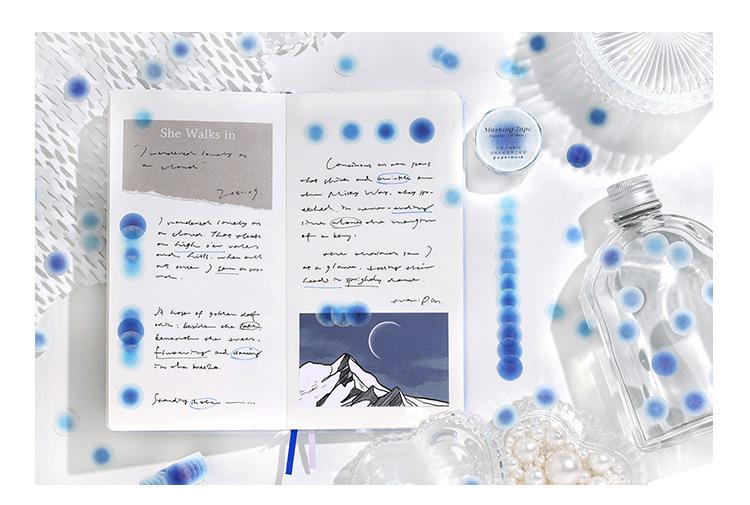 She Walks in
"I wandered lonely as
a cloud"
I wandered lonely as
a cloud. That floats
on high o'er vales
and hills, when all
at once I saw a
A host of golden daf
beside the lake
beneath the trees,
fluttering and dancing
in the breeze.
Continuous as the stars
that shine and twinkle on
the Milky Way, they stre
tched in never-ending
line along the margin
of a bay.
saw I
at a glance, tossing their
heads in sprightly dance.
from Pan.
Masking Tape